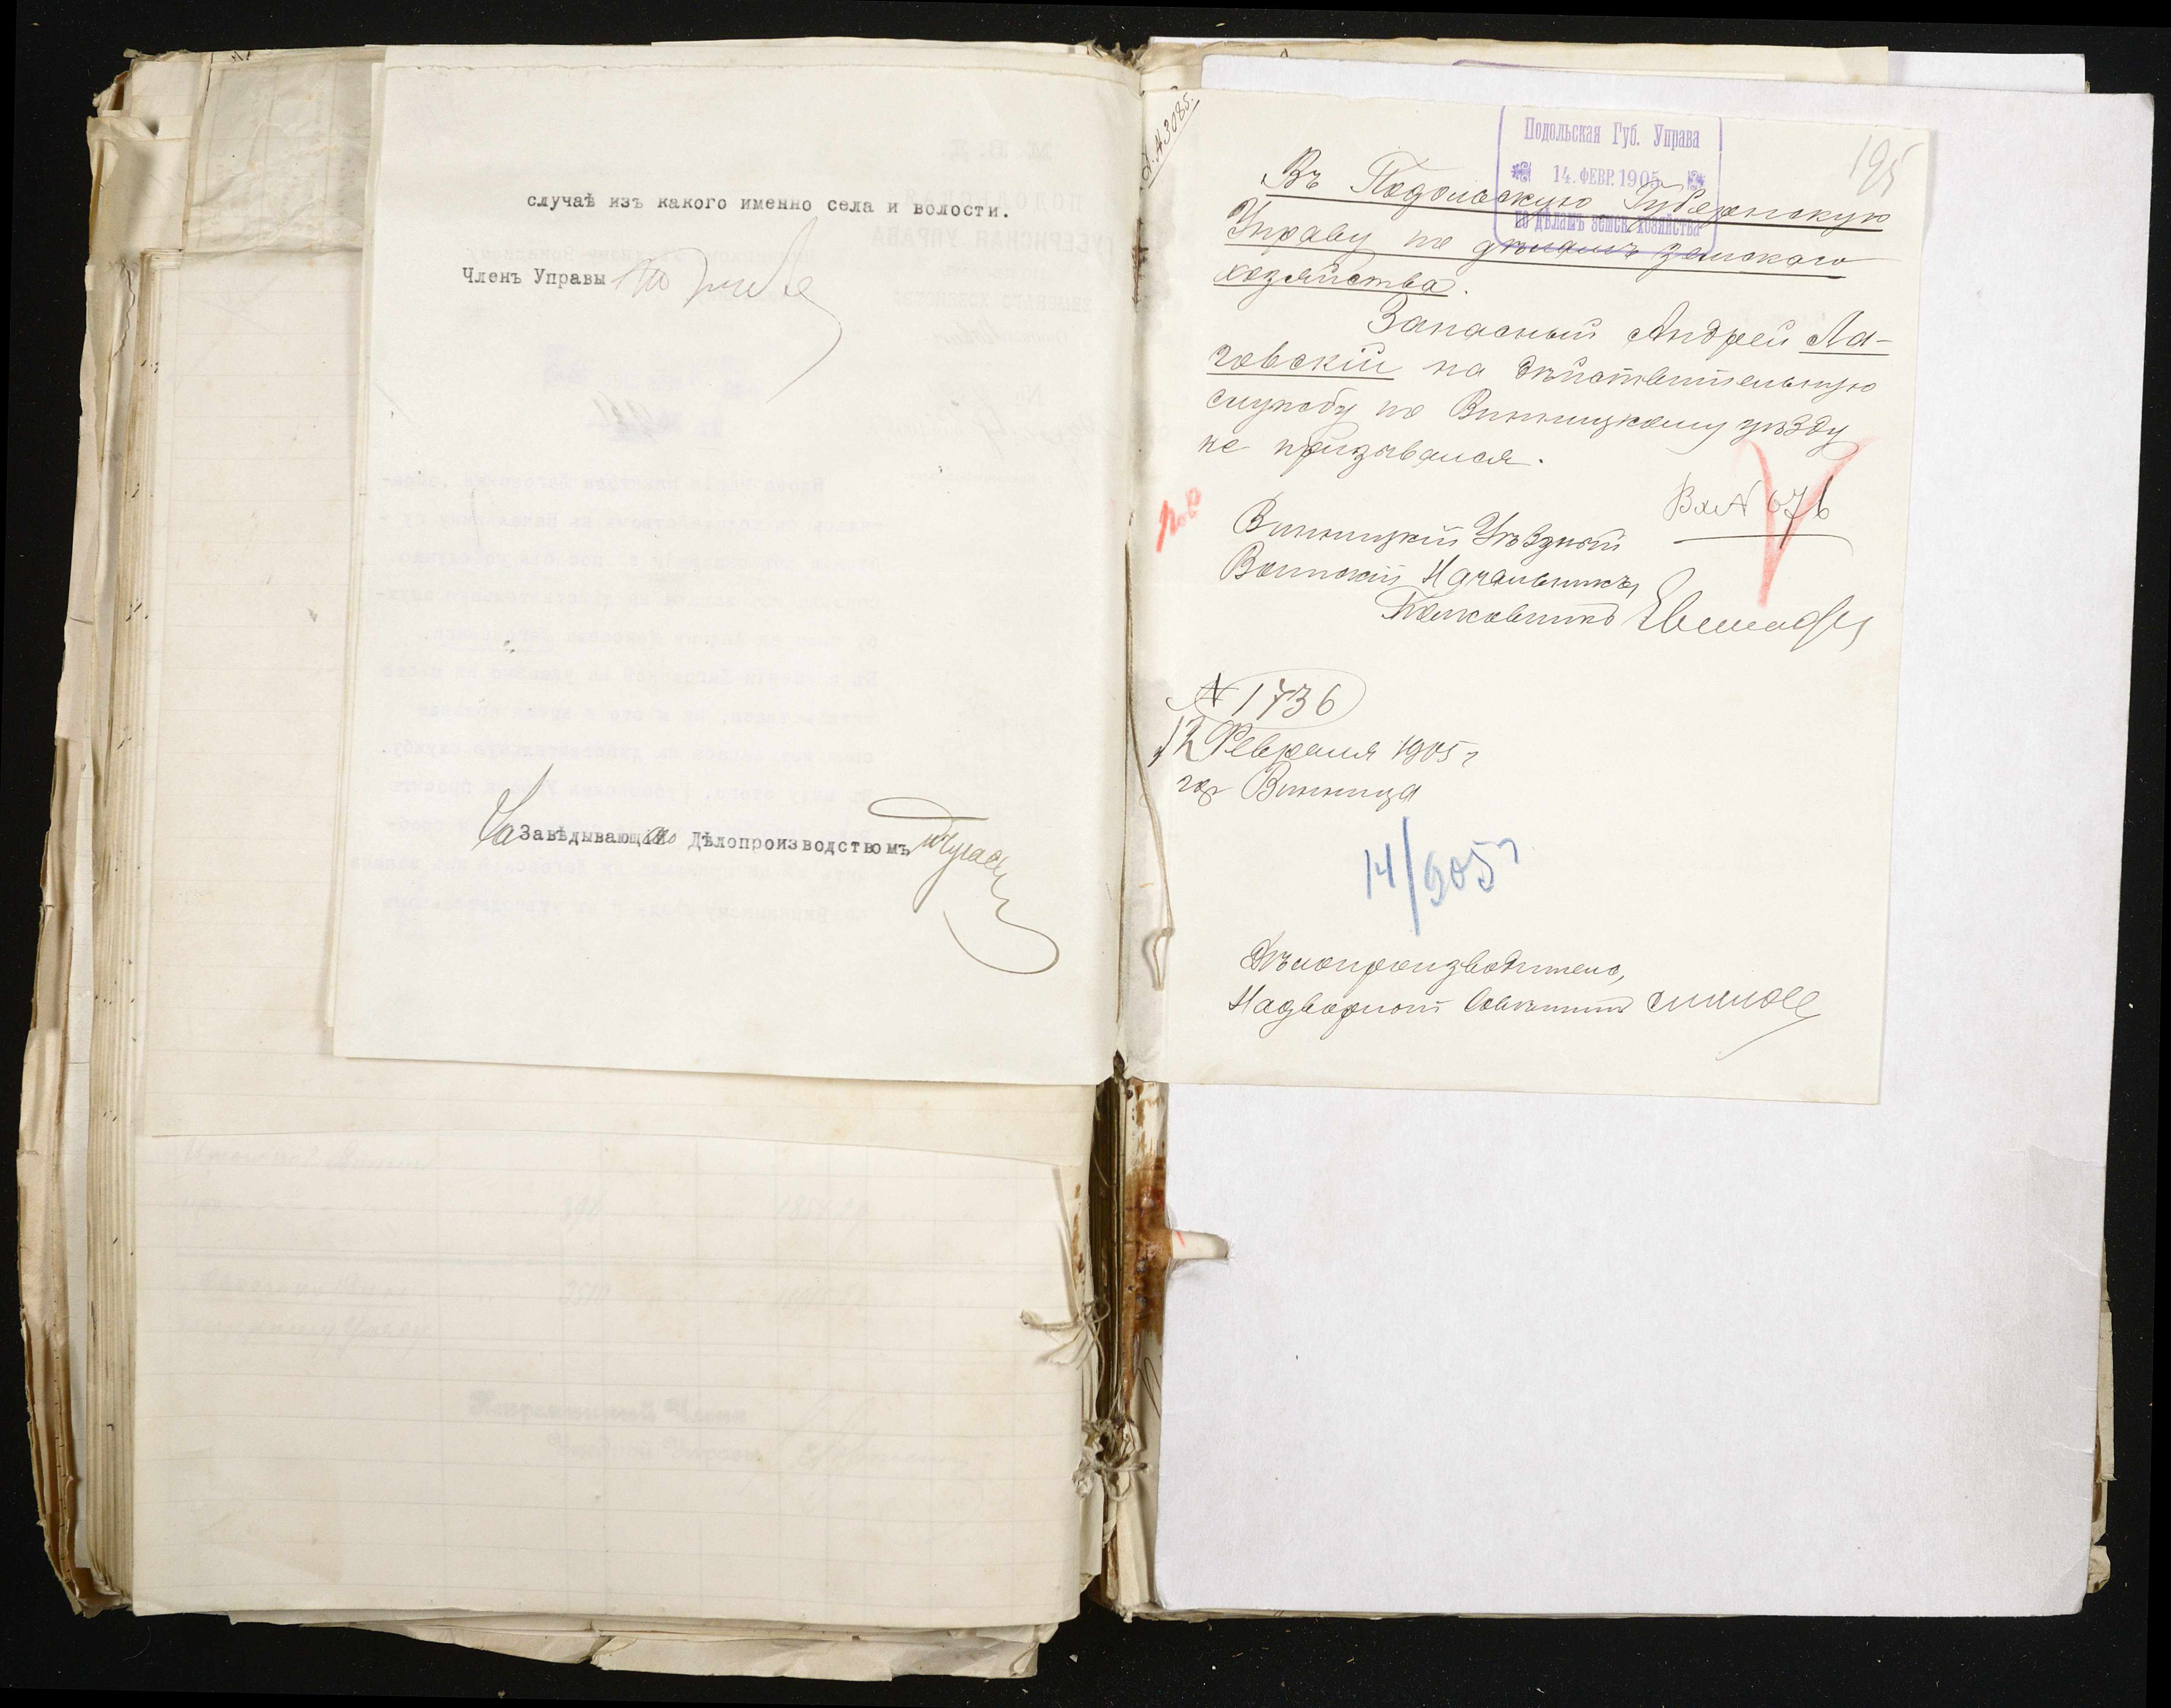 случаѣ изъ какого именно села и волости.
Членъ Управы
За Завѣдывающаго Дѣлопроизводствомъ
195
Подольская Губ. Управа
14. ФЕВР. 1905
по дѣламъ земск. хозяйства
Въ Подольскую Губернскую
Управу по дѣламъ земскаго
хозяйства.
Запасный Андрей Ла-
говскій на дѣйствительную
службу по Винницкому уѣзду
не призывался.
Вх № 676
Винницкій Уѣздный
Воинскій Начальникъ,
Полковникъ
№ 1736
12 Февраля 1905 г
гор Винница
14/905 г
Дѣлопроизводитель,
Надворный Совѣтникъ